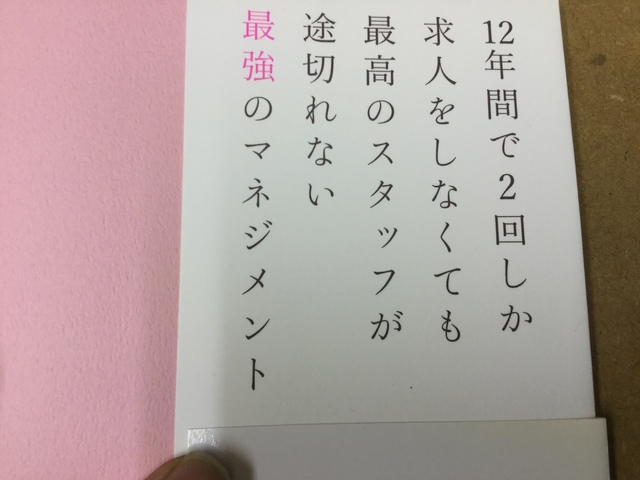 12年間で2回しか
求人をしなくても
最高のスタッフが
途切れない
最強のマネジメント